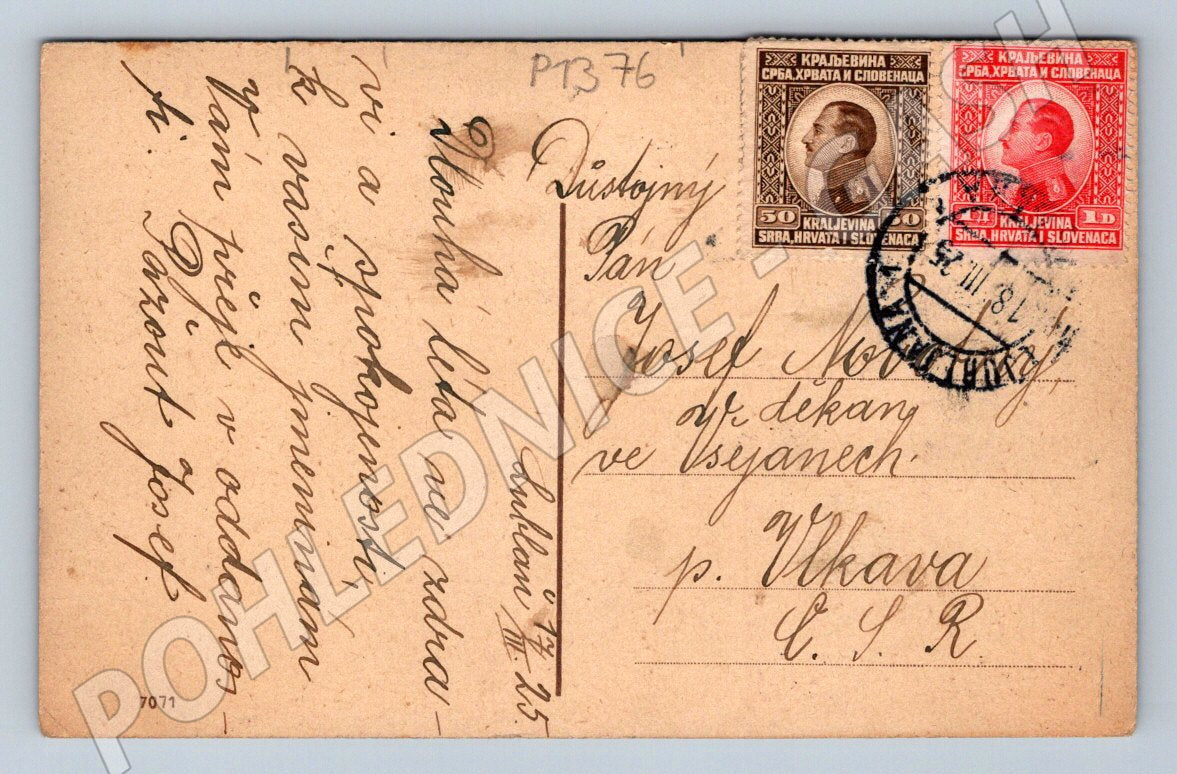 PTB 76
КРАЉЕВИНА
СРБА, ХРВАТА И СЛОВЕНАЦА
50 50
KRALJEVINA
SRBA, HRVATA I SLOVENACA
КРАЉЕВИНА
СРБА, ХРВАТА И СЛОВЕНАЦА
1 Д 1 D
KRALJEVINA
SRBA, HRVATA I SLOVENACA
LJUBLJANA
18. III. 25
Důstojný
Pán
Josef Novotný,
děkan
ve Vsejanech.
p. Vlkava
Č. S. R.
Lublaň 17. III. 25.
Mnohá léta ve zdra-
ví a spokojenosti
k vašim jmeninám
Vám přeje v oddanos-
ti Josef
7071
POHLEDNICE